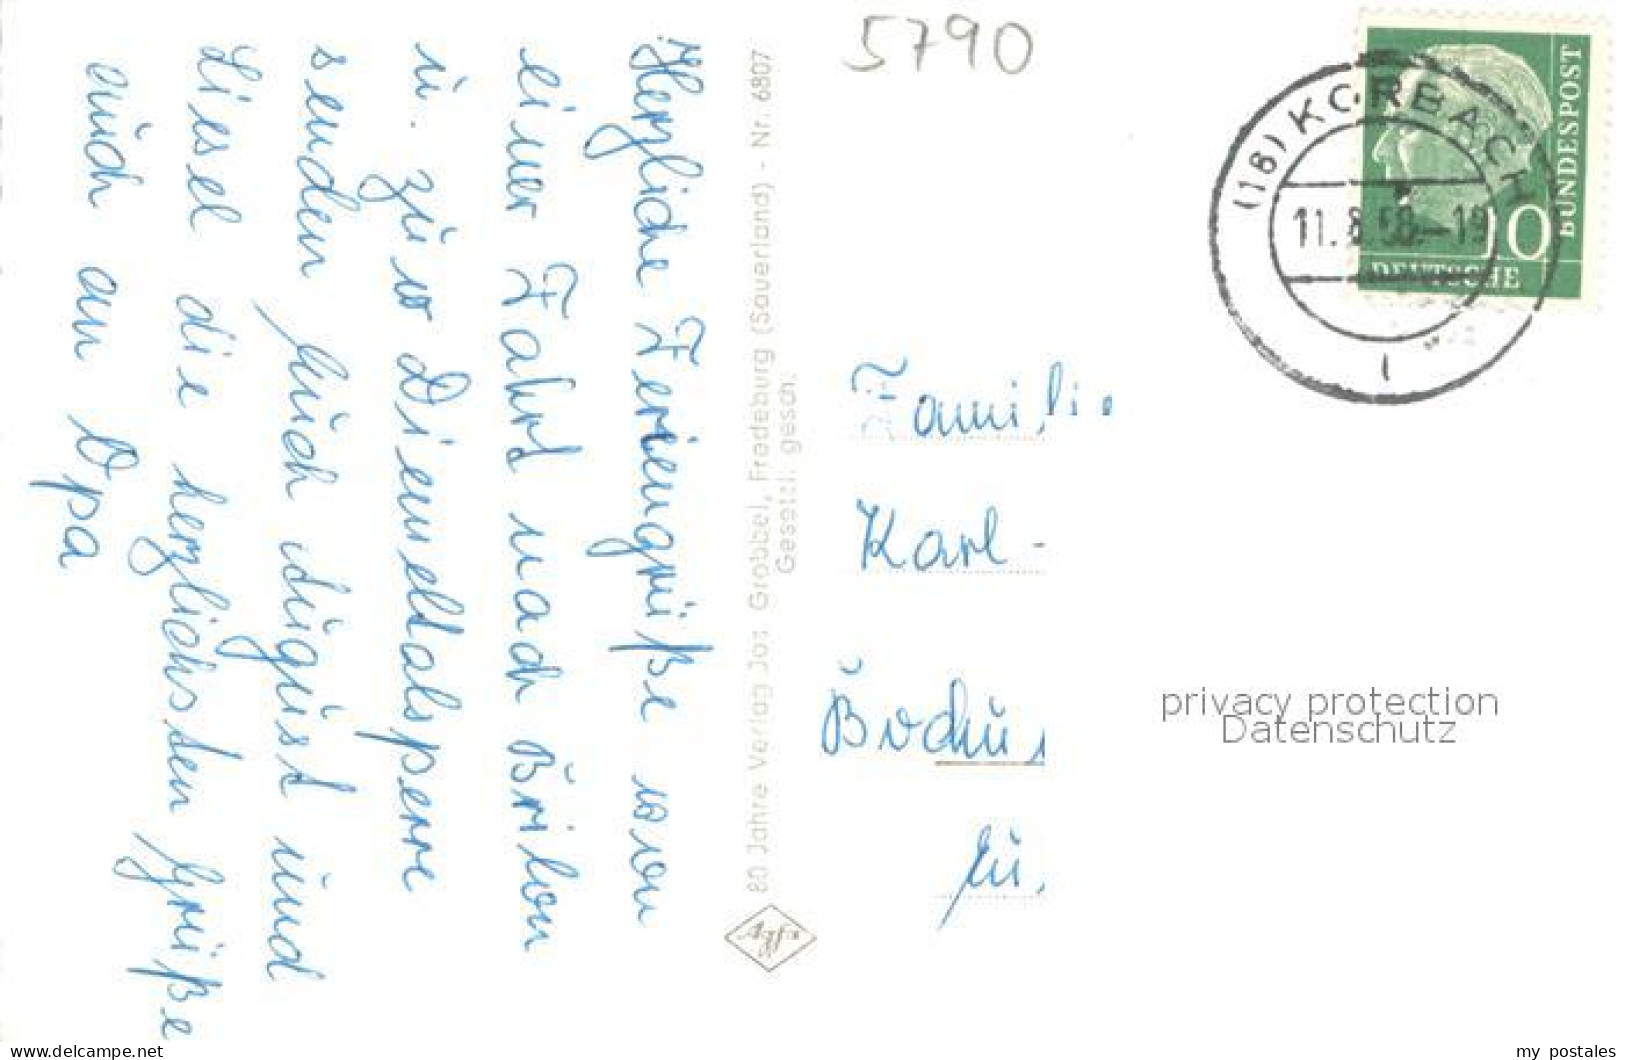 Herzliche Feriengrüße von
einer Fahrt nach Brilon
u. zur Diemeltalsperre
senden Euch August und
Liesel die herzlichsten Grüße
auch an Opa
80 Jahre Verlag Jos Grobbel, Fredeburg (Sauerland) - Nr. 6807
Gesetzl. gesch.
Agfa
5790
(16) KORBACH
11.8.58.-19
l
10
BUNDESPOST
DEUTSCHE
Familie
Karl -
Bochu
privacy protection
Datenschutz
delcampe.net
my_postales